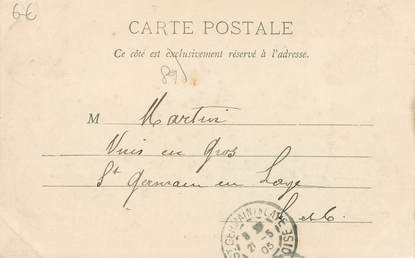 6€
CARTE POSTALE
Ce côté est exclusivement réservé à l'adresse.
89
M Martin
Vins en Gros
St Germain en Laye
S et O.
ST GERMAIN-EN-LAYE
21 -5
05
OISE